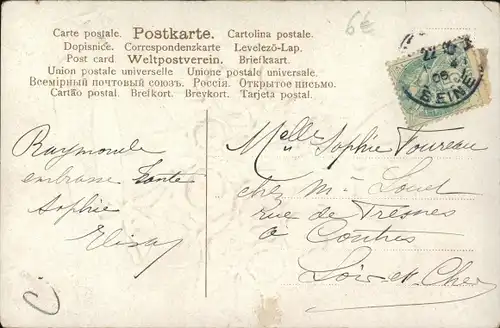 Carte postale. Postkarte. Cartolina postale.
Dopisnice. Correspondenzkarte Levelező-Lap.
Post card Weltpostverein. Briefkaart.
Union postale universelle Unione postale universale.
Всемірный почтовый союзъ. Россія. Открытое письмо.
Cartão postal. Brefkort. Brevkort. Tarjeta postal.
6€
22
06
SEINE
Raymonde
embrasse tante
Sophie
Elisa
Melle Sophie Foureau
chez Mr Louet
rue de Fresnes
à Contres
Loir-et-Cher